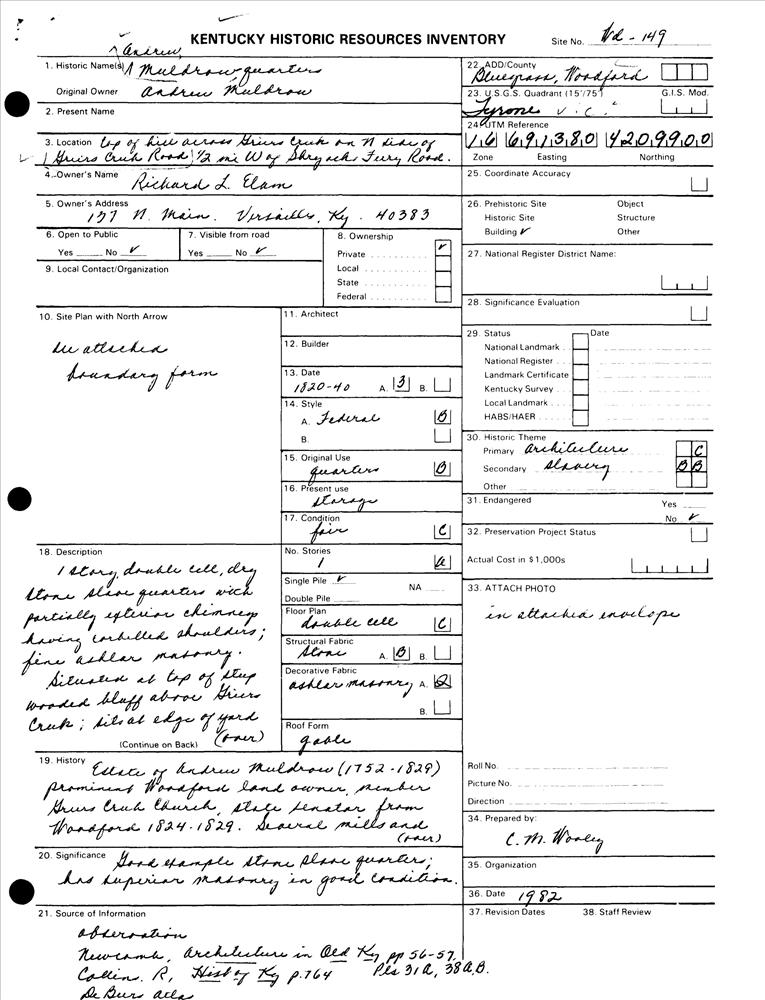 Andrew
KENTUCKY HISTORIC RESOURCES INVENTORY
Site No. Wd - 149
1. Historic Name(s) Muldrow quarters
Original Owner Andrew Muldrow
2. Present Name
3. Location top of hill across Griers Creek on N side of
Griers Creek Road, 1/2 mi W of Shryocks Ferry Road.
4. Owner's Name Richard L. Elam
5. Owner's Address
137 N. Main. Versailles, Ky. 40383
6. Open to Public
Yes No ✓
7. Visible from road
Yes No ✓
8. Ownership
Private ✓
Local
State
Federal
9. Local Contact/Organization
10. Site Plan with North Arrow
see attached
boundary form
11. Architect
12. Builder
13. Date
1820-40 A. 3 B.
14. Style
A. Federal B
B.
15. Original Use
quarters B
16. Present use
storage
17. Condition
fair C
18. Description
1 story, double cell, dry
stone slave quarters with
partially exterior chimneys
having corbelled shoulders;
fine ashlar masonry.
Situated at top of steep
wooded bluff above Griers
Creek; sits at edge of yard
(Continue on Back) (over)
No. Stories
1 a
Single Pile ✓
NA
Double Pile
Floor Plan
double cell C
Structural Fabric
Stone A. B B.
Decorative Fabric
ashlar masonry A. Q
B.
Roof Form
gable
19. History Estate of Andrew Muldrow (1752-1829)
prominent Woodford land owner, member
Griers Creek Church, state senator from
Woodford 1824-1829. Several mills and
(over)
20. Significance Good example stone slave quarters;
has superior masonry in good condition.
21. Source of Information
observation
Newcomb, Architecture in Old Ky pp 56-57.
Pls 31A, 38A,B.
Collin. R, Hist of Ky p.764
De Beers atlas
22. ADD/County
Bluegrass, Woodford
23. U.S.G.S. Quadrant (15'/75') G.I.S. Mod.
Tyrone
24. UTM Reference
16 691380 4209900
Zone Easting Northing
25. Coordinate Accuracy
26. Prehistoric Site Object
Historic Site Structure
Building ✓ Other
27. National Register District Name:
28. Significance Evaluation
29. Status Date
National Landmark
National Register
Landmark Certificate
Kentucky Survey
Local Landmark
HABS/HAER
30. Historic Theme
Primary architecture C
Secondary slavery B B
Other
31. Endangered Yes
No ✓
32. Preservation Project Status
Actual Cost in $1,000s
33. ATTACH PHOTO
in attached envelope
Roll No.
Picture No.
Direction
34. Prepared by:
C. M. Wooley
35. Organization
36. Date 1982
37. Revision Dates 38. Staff Review